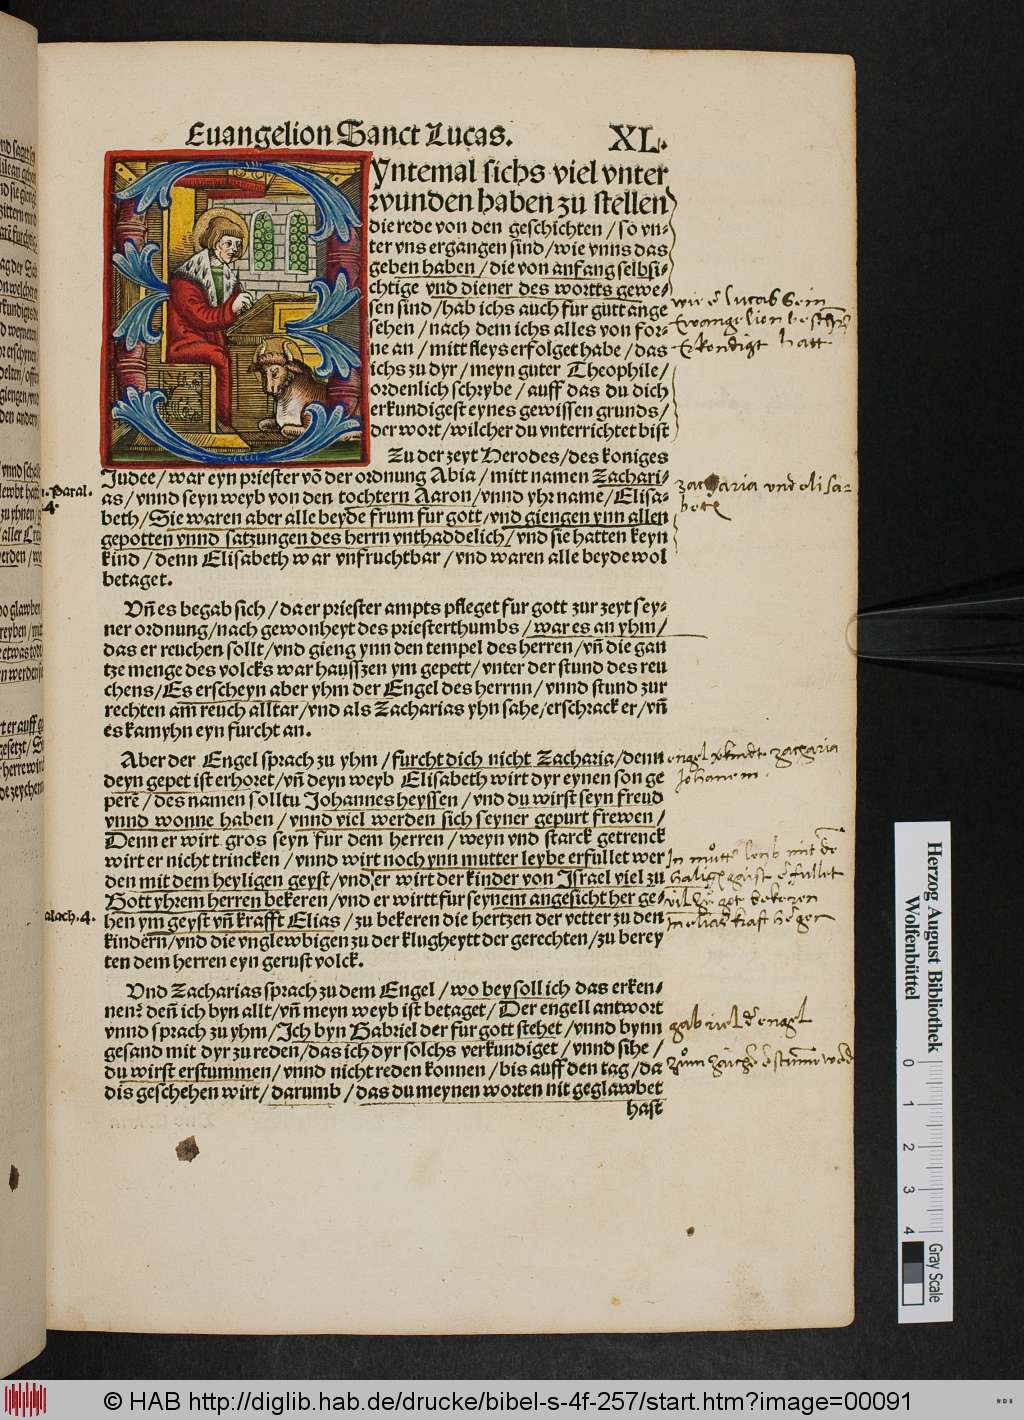 Euangelion Sanct Lucas. XL.
Yntemal sichs viel vnter
wunden haben zu stellen
die rede von den geschichten / so vn⸗
ter vns ergangen sind / wie vnns das
geben haben / die von anfang selbsi⸗
chtige vnd diener des wortts gewe⸗
sen sind / hab ichs auch fur gutt ange
sehen / nach dem ichs alles von for⸗
ne an / mitt fleys erfolget habe / das
ichs zu dyr / meyn guter Theophile /
ordenlich schrybe / auff das du dich
erkundigest eynes gewissen grunds /
der wort / wilcher du vnterrichtet bist
Zu der zeyt Herodes / des koniges
Judee / war eyn priester võ der ordnung Abia / mitt namen Zachari⸗
as / vnnd seyn weyb von den tochtern Aaron / vnnd yhr name / Elisa⸗
beth / Sie waren aber alle beyde frum fur gott / vnd giengen ynn allen
gepotten vnnd satzungen des herrn vnthaddelich / vnd sie hatten keyn
kind / denn Elisabeth war vnfruchtbar / vnd waren alle beyde wol
betaget.
1. Paral.
4.
Vñ es begab sich / da er priester ampts pfleget fur gott zur zeyt sey⸗
ner ordnung / nach gewonheyt des priesterthumbs / war es an yhm /
das er reuchen sollt / vnd gieng ynn den tempel des herren / vñ die gan
tze menge des volcks war haussen ym gepett / vnter der stund des reu
chens / Es erscheyn aber yhm der Engel des herrnn / vnnd stund zur
rechten am reuch alltar / vnd als Zacharias yhn sahe / erschrack er / vñ
es kam yhn eyn furcht an.
Aber der Engel sprach zu yhm / furcht dich nicht Zacharia / denn
deyn gepet ist erhoret / vñ deyn weyb Elisabeth wirt dyr eynen son ge
perẽ / des namen solltu Johannes heyssen / vnd du wirst seyn freud
vnnd wonne haben / vnnd viel werden sich seyner gepurt frewen /
Denn er wirt gros seyn fur dem herren / weyn vnd starck getrenck
wirt er nicht trincken / vnnd wirt noch ynn mutter leybe erfullet wer
den mit dem heyligen geyst / vnd er wirt der kinder von Israel viel zu
Gott yhrem herren bekeren / vnd er wirtt fur seynem angesicht her ge⸗
hen ym geyst vñ krafft Elias / zu bekeren die hertzen der vetter zu den
kindern / vnd die vnglewbigen zu der klugheytt der gerechten / zu berey
ten dem herren eyn gerust volck.
alach. 4.
Vnd Zacharias sprach zu dem Engel / wo bey soll ich das erken⸗
nen? deñ ich byn allt / vñ meyn weyb ist betaget / Der engell antwort
vnnd sprach zu yhm / Ich byn Gabriel der fur gott stehet / vnnd bynn
gesand mit dyr zu reden / das ich dyr solchs verkundiget / vnnd sihe /
du wirst erstummen / vnnd nicht reden konnen / bis auff den tag / da
dis geschehen wirt / darumb / das du meynen worten nit geglawbet
hast
lucas sein
Evangelion
hatt
zacharia vnd elisa⸗
bet
engel zacharia
Johanem
In leib mit
got bekeren
elias kraft
gabriel engel
Herzog August Bibliothek
Wolfenbüttel
0 1 2 3 4
Gray Scale
© HAB http://diglib.hab.de/drucke/bibel-s-4f-257/start.htm?image=00091